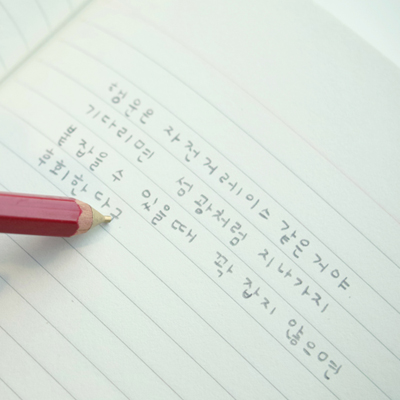 행운은 자전거레이스 같은거야
기다리면 섬광처럼 지나가지
잡을 수 있을 때 꽉 잡지 않으면
후회한다고